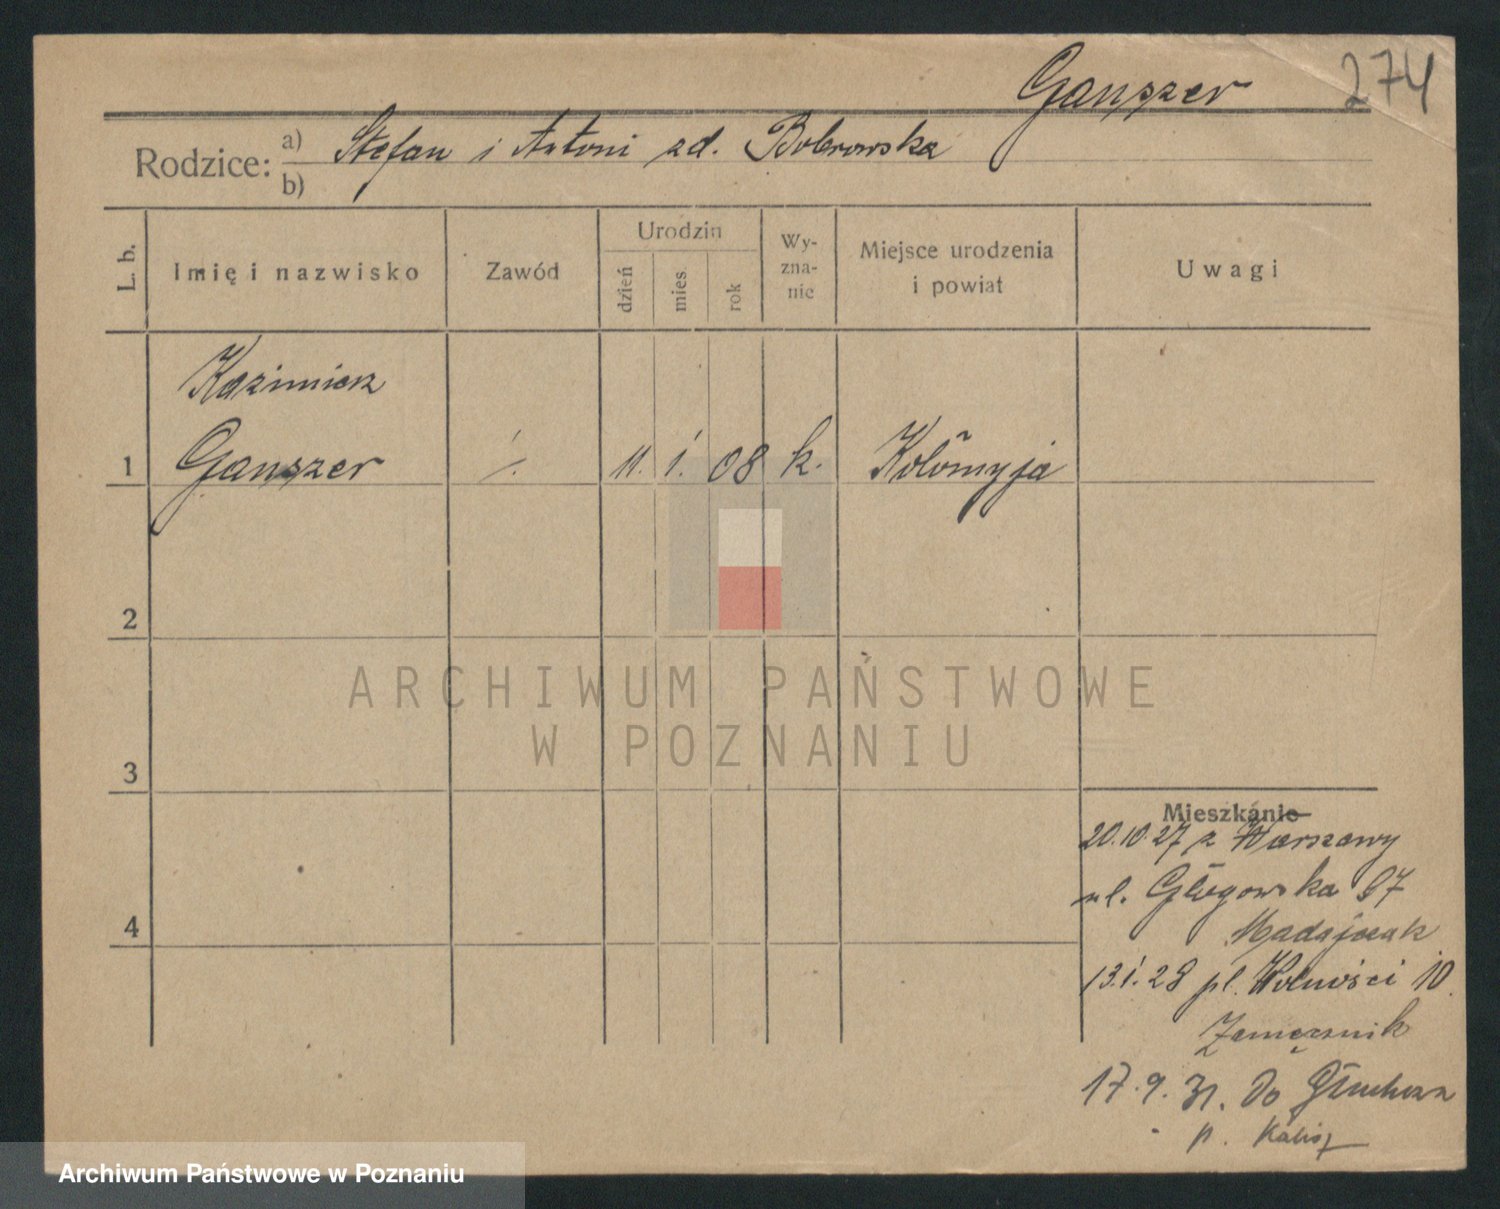 Ganszer 274
Rodzice: a) Stefan i Antoni zd. Bobrowska
b)
L. b.
Imię i nazwisko
Zawód
Urodzin
dzień
mies.
rok
Wy-
zna-
nie
Miejsce urodzenia
i powiat
Uwagi
Kazimierz
1 Ganszer ./. 11. 1. 08 k. Kołomyja
2
3
4
ARCHIWUM PAŃSTWOWE
W POZNANIU
Mieszkanie
20.10.27 z Warszawy
ul. Głogowska 97
Madajczak
13.1.28 pl. Wolności 10.
17.9.31. Do
p. Kalisz
Archiwum Państwowe w Poznaniu